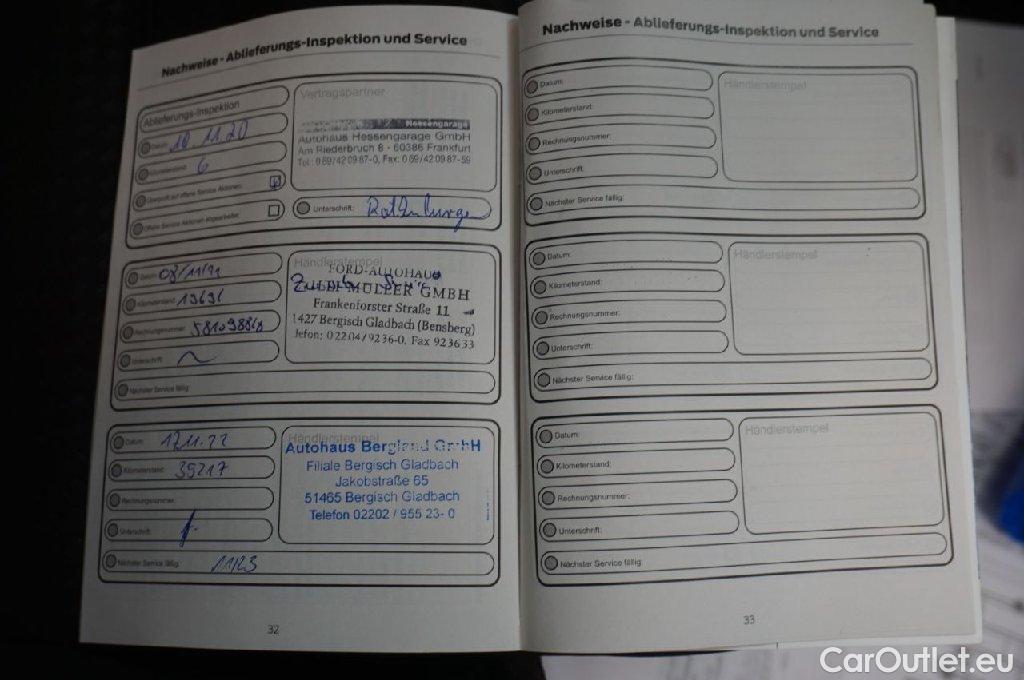 Nachweise - Ablieferungs-Inspektion und Service
Ablieferungs-Inspektion
Datum: 10.11.20
Kilometerstand: 6
Überprüft auf offene Service Aktionen:
Offene Service Aktionen abgearbeitet:
Vertragspartner
Hessengarage
Autohaus Hessengarage GmbH
Am Riederbruch 8 - 60386 Frankfurt
Tel.: 0 69/420 9 87-0, Fax: 0 69/420 9 87-59
Unterschrift:
Datum:
Kilometerstand: 19691
Rechnungsnummer:
Unterschrift:
Nächster Service fällig:
Händlerstempel
FORD-AUTOHAUS
MÜLLER GMBH
Frankenforster Straße 11
1427 Bergisch Gladbach (Bensberg)
lefon: 0 22 04 / 92 36-0, Fax 92 36 33
Datum: 17.11.22
Kilometerstand: 35217
Rechnungsnummer:
Unterschrift:
Nächster Service fällig: 11/23
Händlerstempel
Autohaus Bergland GmbH
Filiale Bergisch Gladbach
Jakobstraße 65
51465 Bergisch Gladbach
Telefon 02202 / 955 23- 0
32
Nachweise - Ablieferungs-Inspektion und Service
Datum:
Kilometerstand:
Rechnungsnummer:
Unterschrift:
Nächster Service fällig:
Händlerstempel
Datum:
Kilometerstand:
Rechnungsnummer:
Unterschrift:
Nächster Service fällig:
Händlerstempel
Datum:
Kilometerstand:
Rechnungsnummer:
Unterschrift:
Nächster Service fällig:
Händlerstempel
33
CarOutlet.eu